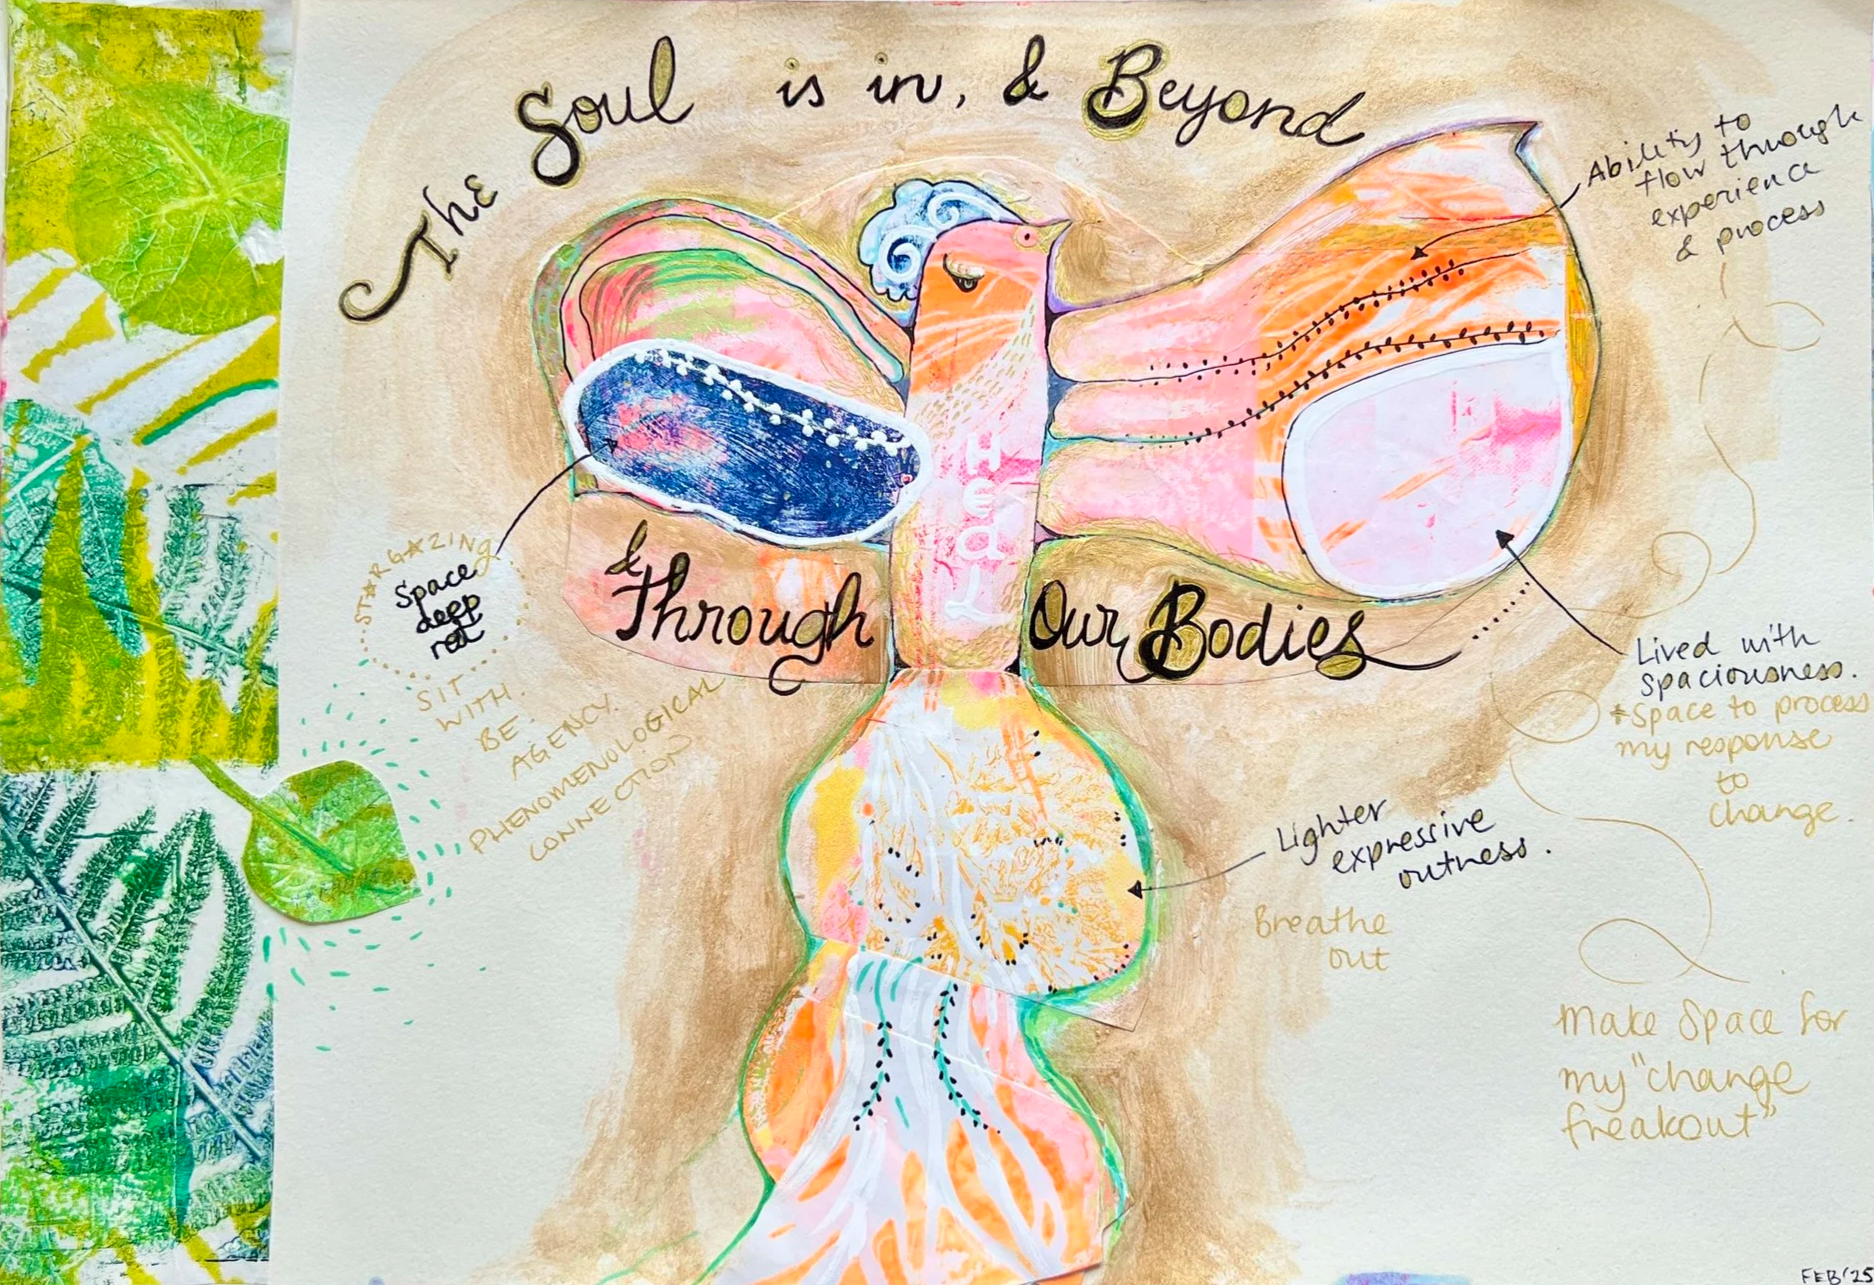 The Soul is in, & Beyond
& Through Our Bodies
Heal
Ability to
flow through
experience
& process
STARGAZING
Space
deep
rest
SIT
WITH.
BE.
AGENCY.
PHENOMENOLOGICAL
CONNECTION
Lived with
spaciousness.
*Space to process
my response
to
change.
Lighter
expressive
outness.
Breathe
out
Make Space for
my "change
freakout"
FEB '25